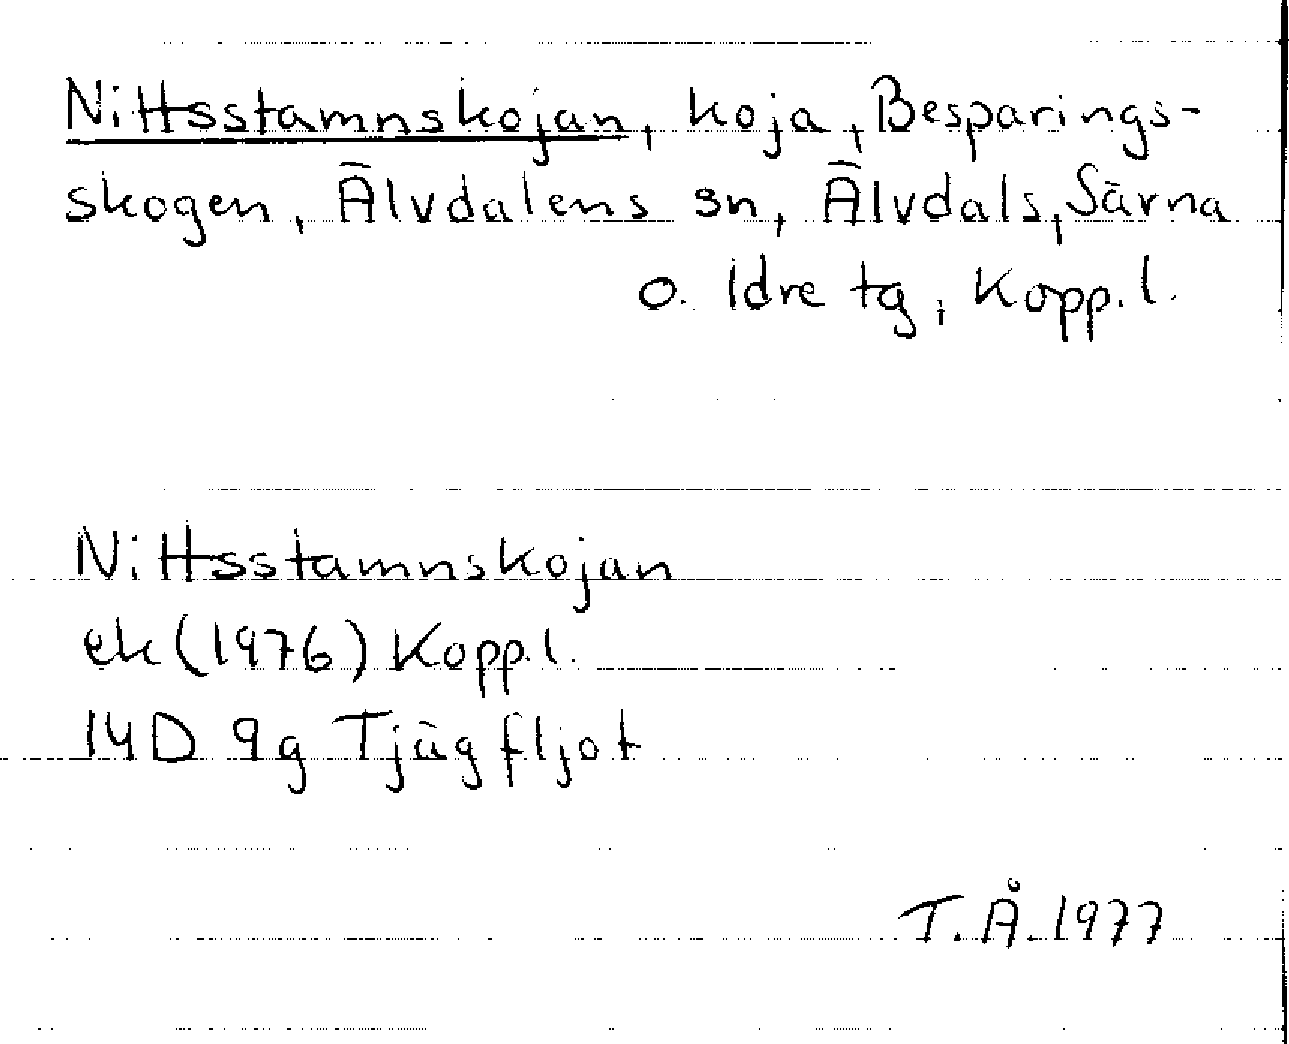 Nittsstamnskojan, koja, Besparings-
skogen, Älvdalens sn, Älvdals, Särna
o. Idre tg, Kopp.l.
Nittsstamnskojan
ek (1976) Kopp.l.
14D 9g Tjägfljot
T.Å. 1977